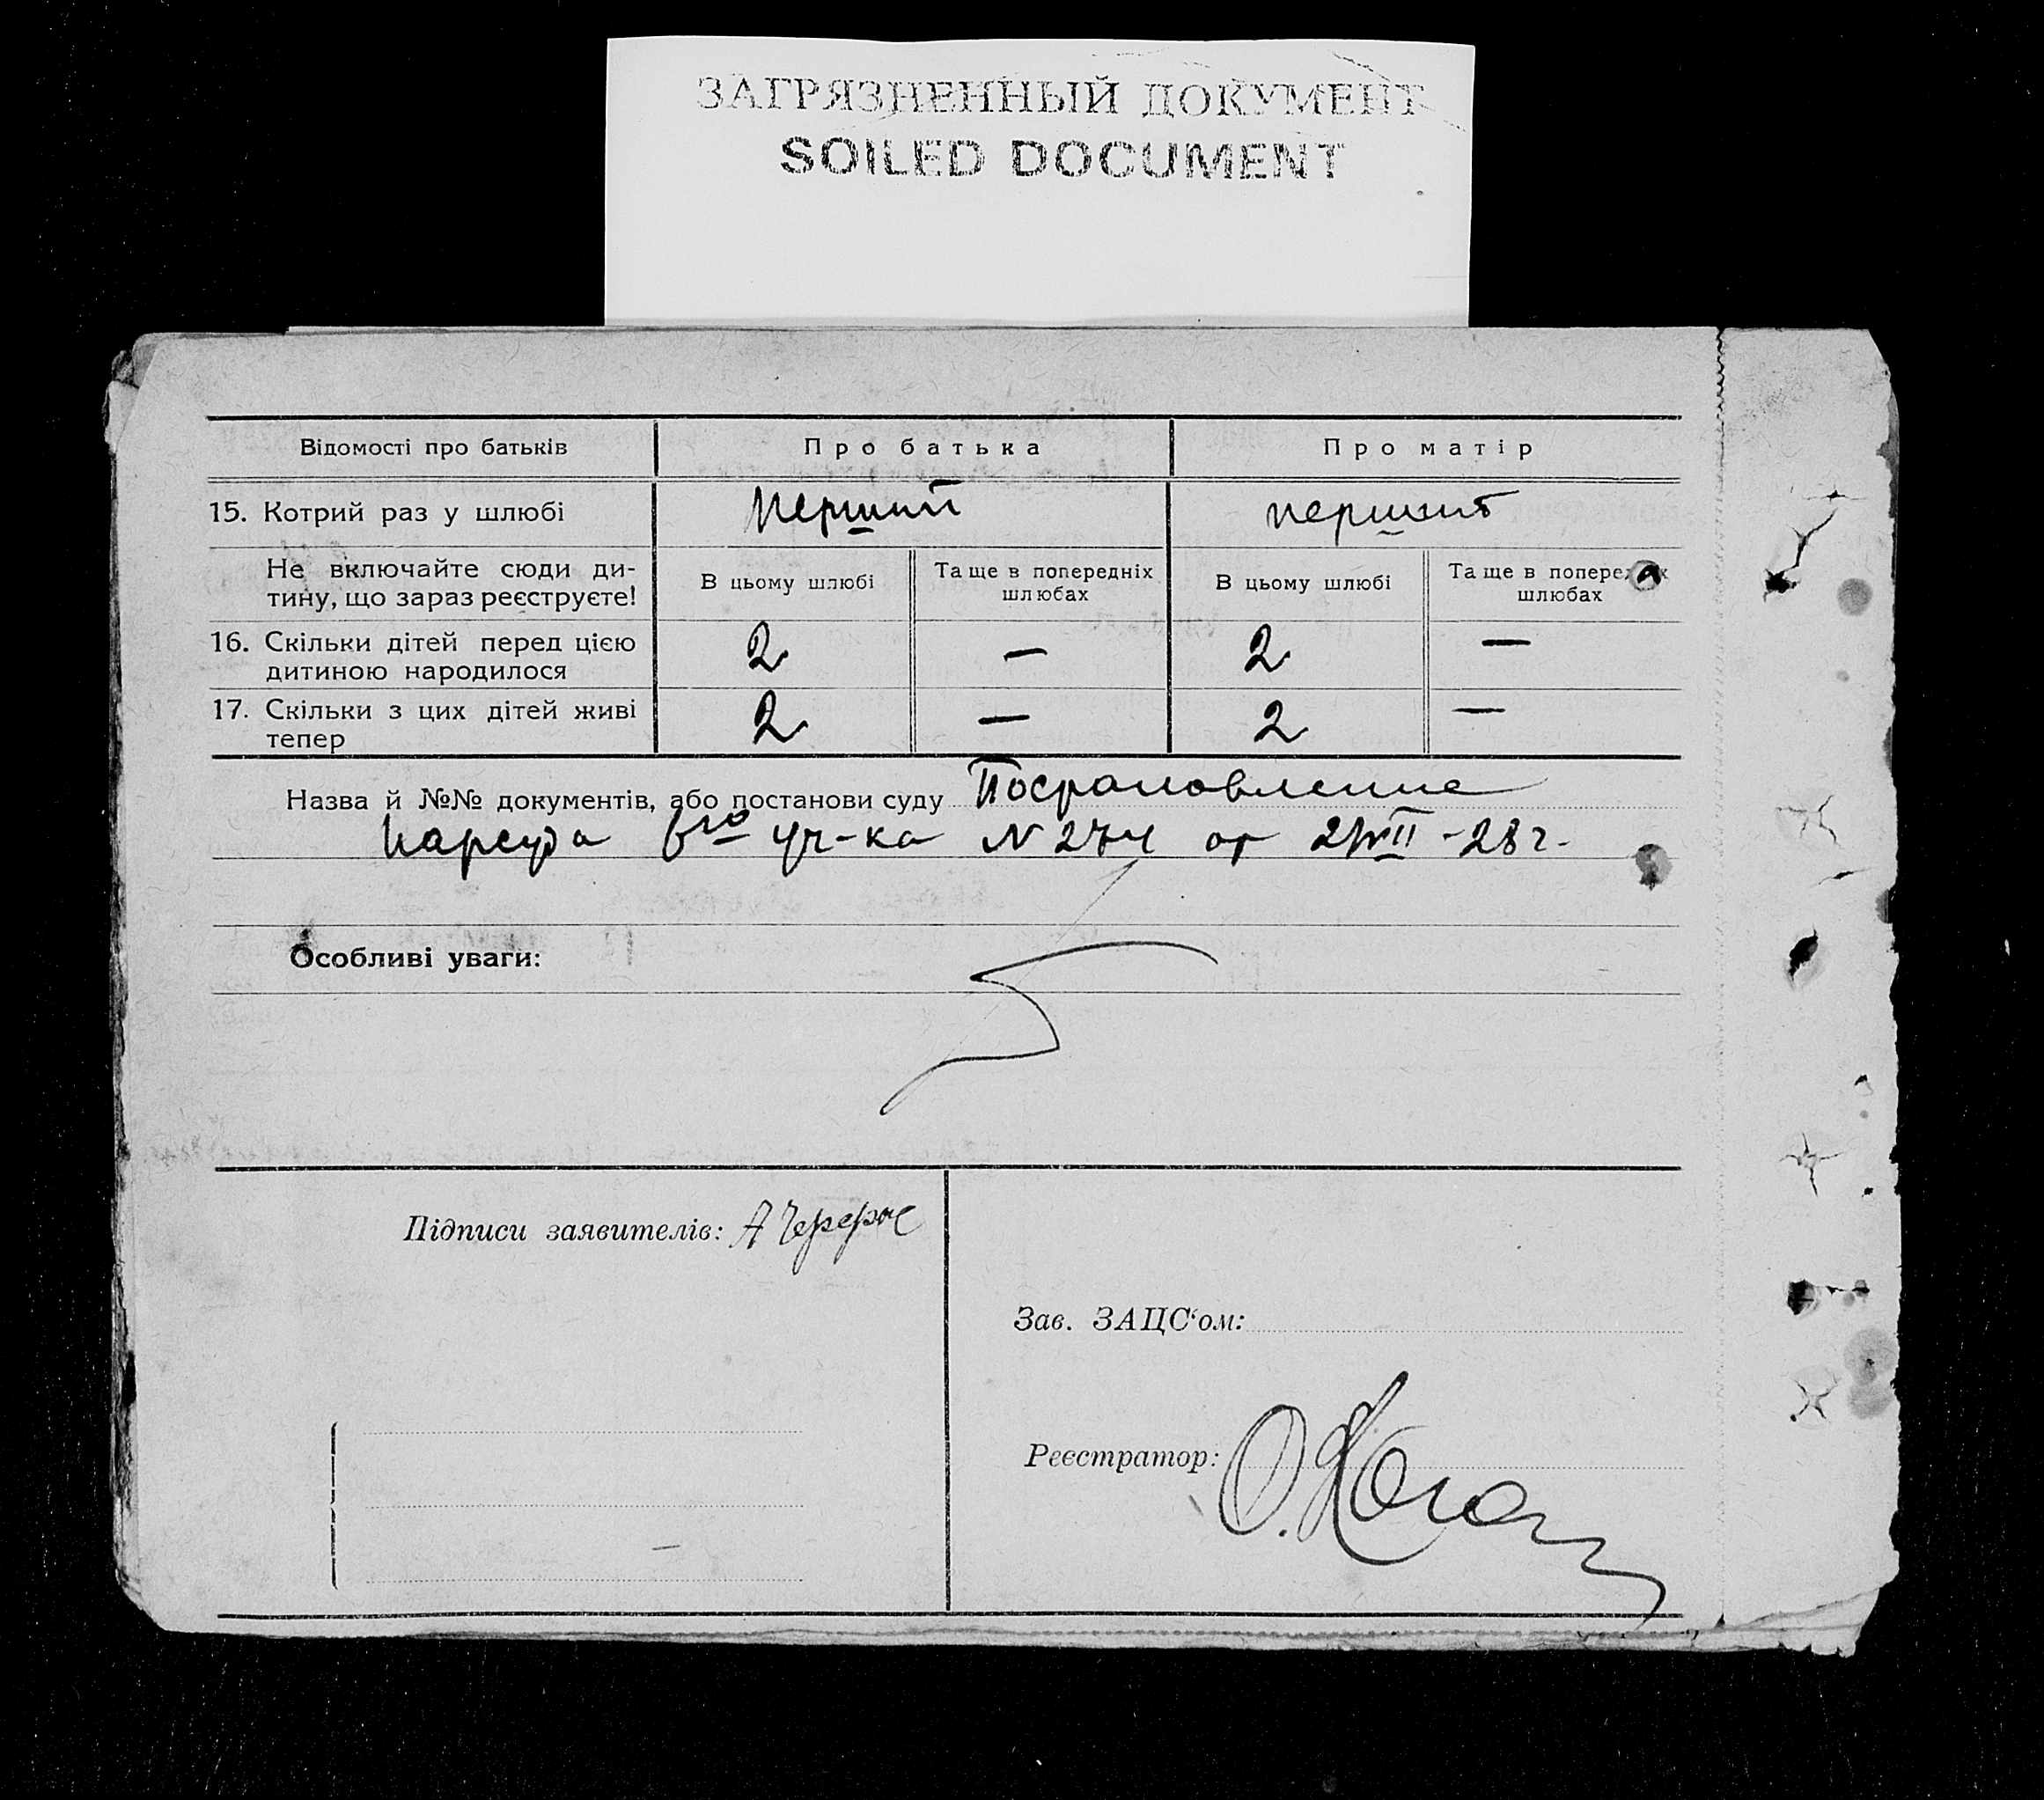 ЗАГРЯЗНЕННЫЙ ДОКУМЕНТ
SOILED DOCUMENT
Відомості про батьків Про батька Про матір
15. Котрий раз у шлюбі первый первый
Не включайте сюди ди-
тину, що зараз реєструєте!
В цьому шлюбі Та ще в попередніх шлюбах В цьому шлюбі Та ще в попередніх шлюбах
16. Скільки дітей перед цією
дитиною народилося 2 — 2 —
17. Скільки з цих дітей живі
тепер 2 — 2 —
Назва й №№ документів, або постанови суду Постановление
Нарсуда 6го уч-ка N 274 от -28 г.
Особливі уваги:
Підписи заявителів: А
Зав. ЗАЦС‘ом:
Реєстратор: О. Коган